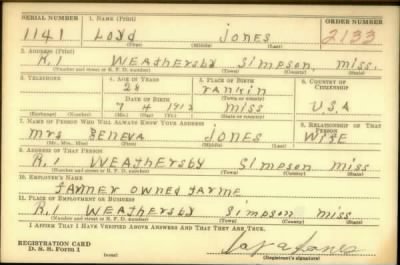 SERIAL NUMBER 1. NAME (Print) ORDER NUMBER
1141 LOYD JONES 2133
(First) (Middle) (Last)
2. ADDRESS (Print)
R.1 WEATHERSBY SIMPSON, MISS.
(Number and street or R. F. D. number) (Town) (County) (State)
3. TELEPHONE 4. AGE IN YEARS 5. PLACE OF BIRTH 6. COUNTRY OF CITIZENSHIP
28 RANKIN
(Town or county)
DATE OF BIRTH
7 4 1912 MISS USA
(Exchange) (Number) (Mo.) (Day) (Yr.) (State or country)
7. NAME OF PERSON WHO WILL ALWAYS KNOW YOUR ADDRESS 8. RELATIONSHIP OF THAT PERSON
MRS GENEVA JONES WIFE
(Mr., Mrs., Miss) (First) (Middle) (Last)
9. ADDRESS OF THAT PERSON
R.1 WEATHERSBY SIMPSON MISS
(Number and street or R. F. D. number) (Town) (County) (State)
10. EMPLOYER'S NAME
FARMER OWNED FARME
11. PLACE OF EMPLOYMENT OR BUSINESS
R.1 WEATHERSBY SIMPSON MISS
(Number and street or R. F. D. number) (Town) (County) (State)
I AFFIRM THAT I HAVE VERIFIED ABOVE ANSWERS AND THAT THEY ARE TRUE.
REGISTRATION CARD
D. S. S. Form 1
(over) (Registrant's signature)